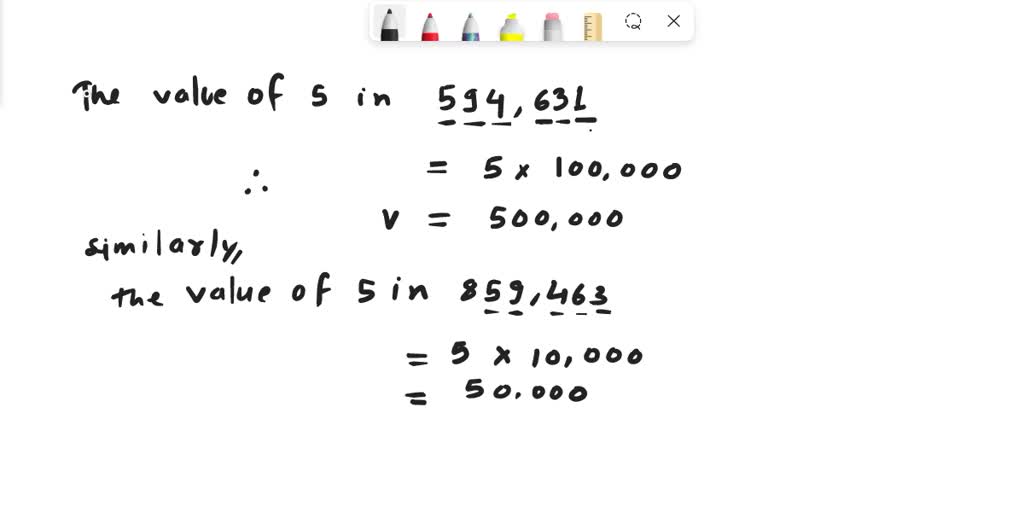 The value of 5 in 594,631
= 5 x 100,000
∴
v = 500,000
similarly,
the value of 5 in 859,463
= 5 x 10,000
= 50.000